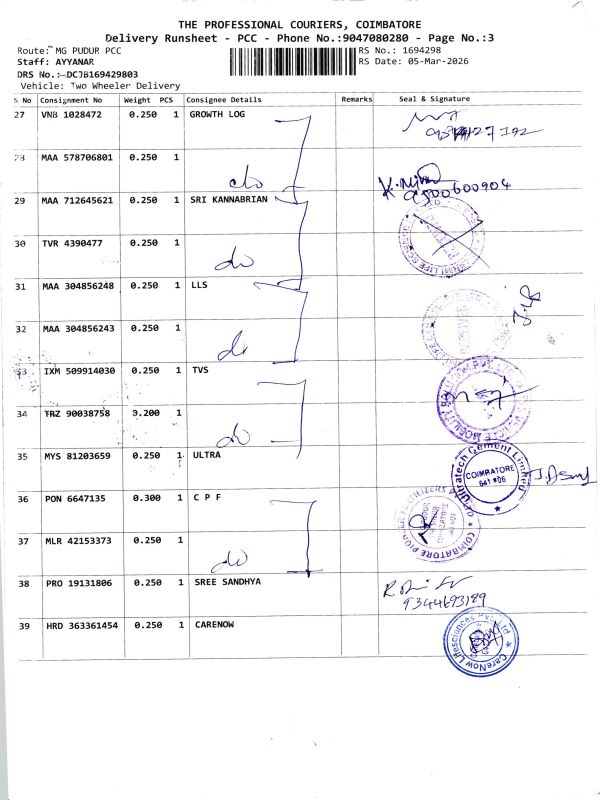 THE PROFESSIONAL COURIERS, COIMBATORE
Delivery Runsheet - PCC - Phone No.:9047080280 - Page No.:3
Route: MG PUDUR PCC
RS No.: 1694298
Staff: AYYANAR
RS Date: 05-Mar-2026
DRS No.:-DCJB169429803
Vehicle: Two Wheeler Delivery
S No Consignment No Weight PCS Consignee Details Remarks Seal & Signature
27 VNB 1028472 0.250 1 GROWTH LOG
28 MAA 578706801 0.250 1 do
K. Nivas
9500600904
29 MAA 712645621 0.250 1 SRI KANNABRIAN
30 TVR 4390477 0.250 1 do
31 MAA 304856248 0.250 1 LLS
32 MAA 304856243 0.250 1 do
33 IXM 509914030 0.250 1 TVS
34 TRZ 90038758 0.200 1 do
35 MYS 81203659 0.250 1 ULTRA
Ultratech Cement Limited
COIMBATORE
641 006
36 PON 6647135 0.300 1 C P F
37 MLR 42153373 0.250 1 do
38 PRO 19131806 0.250 1 SREE SANDHYA
9344693189
39 HRD 363361454 0.250 1 CARENOW
CareNow Lifesciences Pvt Ltd